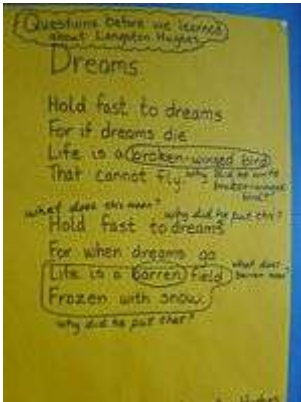 Questions before we learned
about Langston Hughes
Dreams
Hold fast to dreams
For if dreams die
Life is a broken-winged bird
That cannot fly.
why did he write
broken-winged
bird?
what does this mean?
why did he put this?
Hold fast to dreams
For when dreams go
Life is a barren field
what does
barren mean?
Frozen with snow.
why did he put that?
Hughes